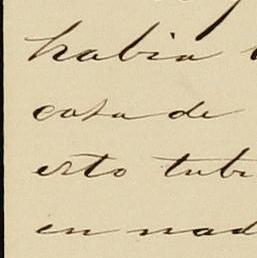 habia
casa de
esto tubi
en nad